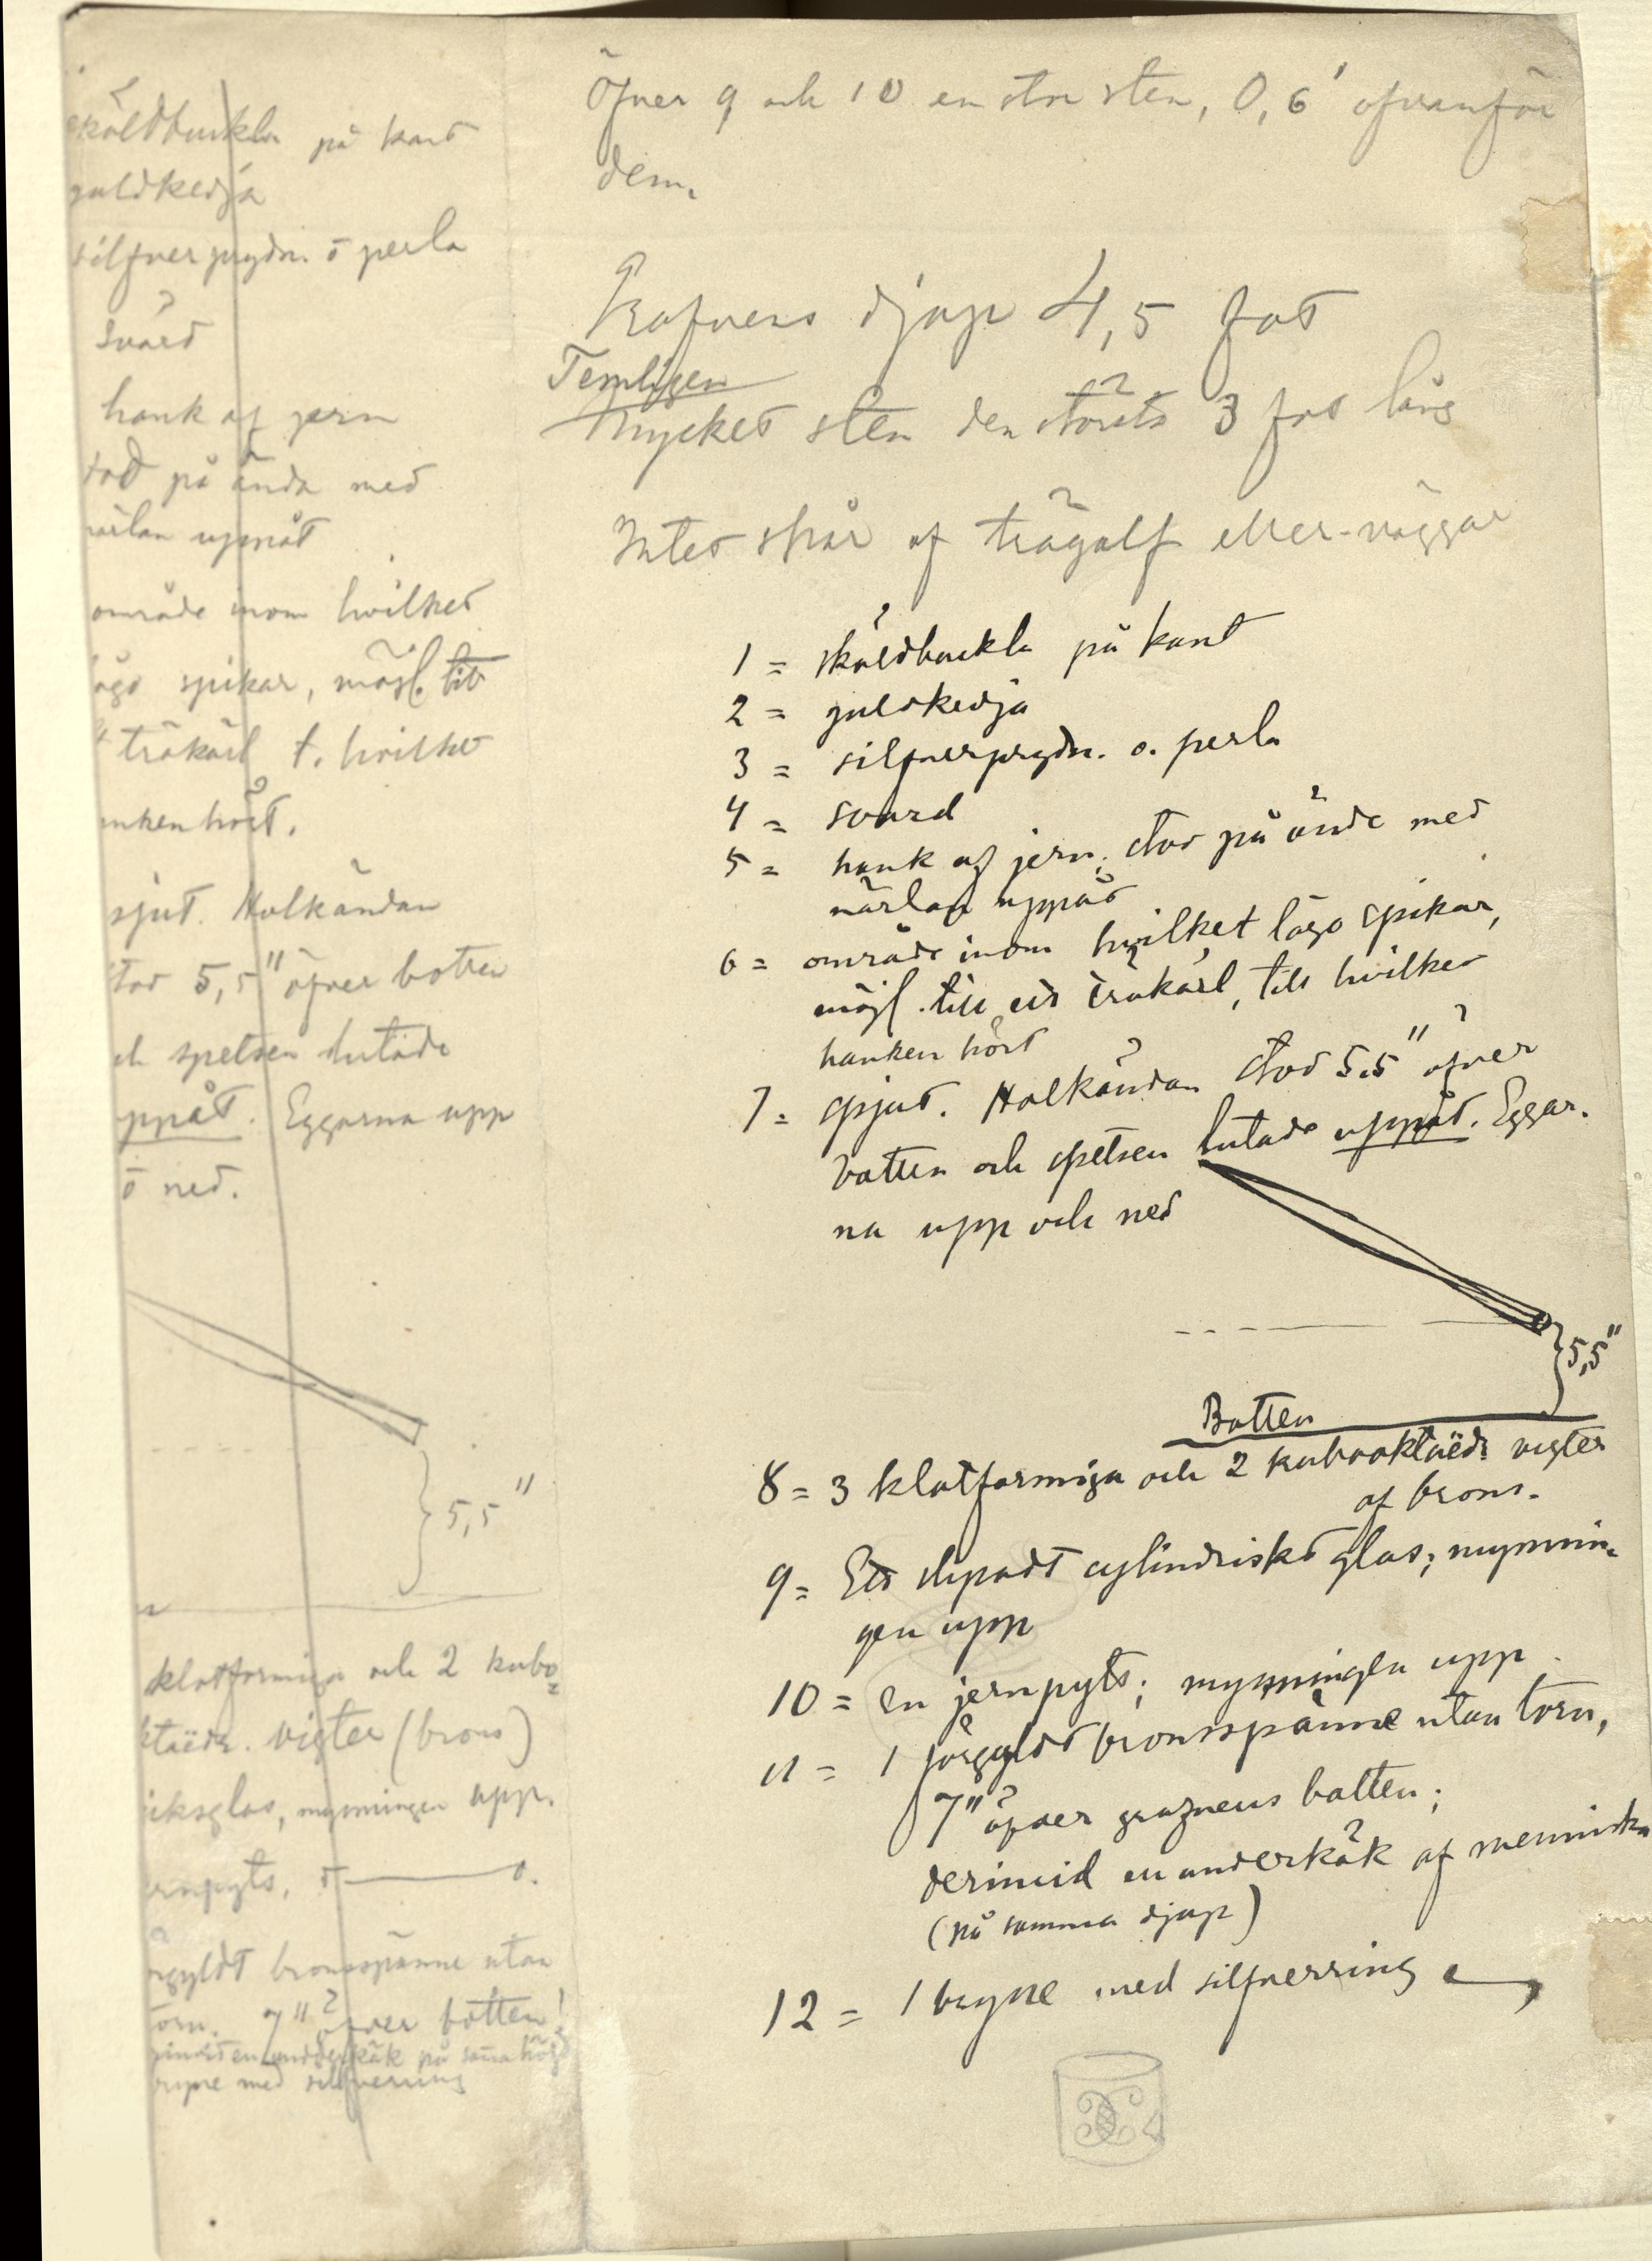 sköldbuckla på kant
guldkedja
silfverprydn. o perla
svärd
hank af jern
stod på ända med
närlan uppåt
område inom hvilket
lågo spikar, möjl. till
träkärl t. hvilket
anken hört.
spjut. Holkändan
stod 5,5" öfver botten
och spetsen lutade
uppåt. Eggarna upp
o ned.
5,5"
klotformiga och 2 kubo=
ktaëdr. vigter (brons)
iksglas, mynningen upp.
ernpyts, o.
rgyldt bronsspänne utan
torn. 7" öfver botten!
en underkäk på sama höjd
bryne med silfverring
Öfver 9 och 10 en stor sten, 0,6' ofvanför
dem.
Grafvens djup 4,5 fot
Temligen
Mycket sten den största 3 fot lång
Intet spår af trägolf eller -väggar
1 = sköldbuckla på kant
2 = guldkedja
3 = silfverprydn. o. perla
4 = svärd
5 = hank af jern; stod på ände med
närlan uppåt
6 = område inom hvilket lågo spikar,
möjl. till ett träkärl, till hvilket
hanken hört
7 = spjut. Holkändan stod 5.5" öfver
botten och spetsen lutade uppåt. Eggar-
na upp och ned
5,5"
Botten
8 = 3 klotformiga och 2 kubooktaëdr vigter
af brons.
9 = Ett slipadt cylindriskt glas; mynnin-
gen upp
10 = en jernpyts; mynningen upp.
11 = 1 förgyldt bronsspänne utan torn,
7" öfver grafvens botten;
derinvid en underkäk af menniska
(på samma djup)
12 = 1 bryne med silfverring